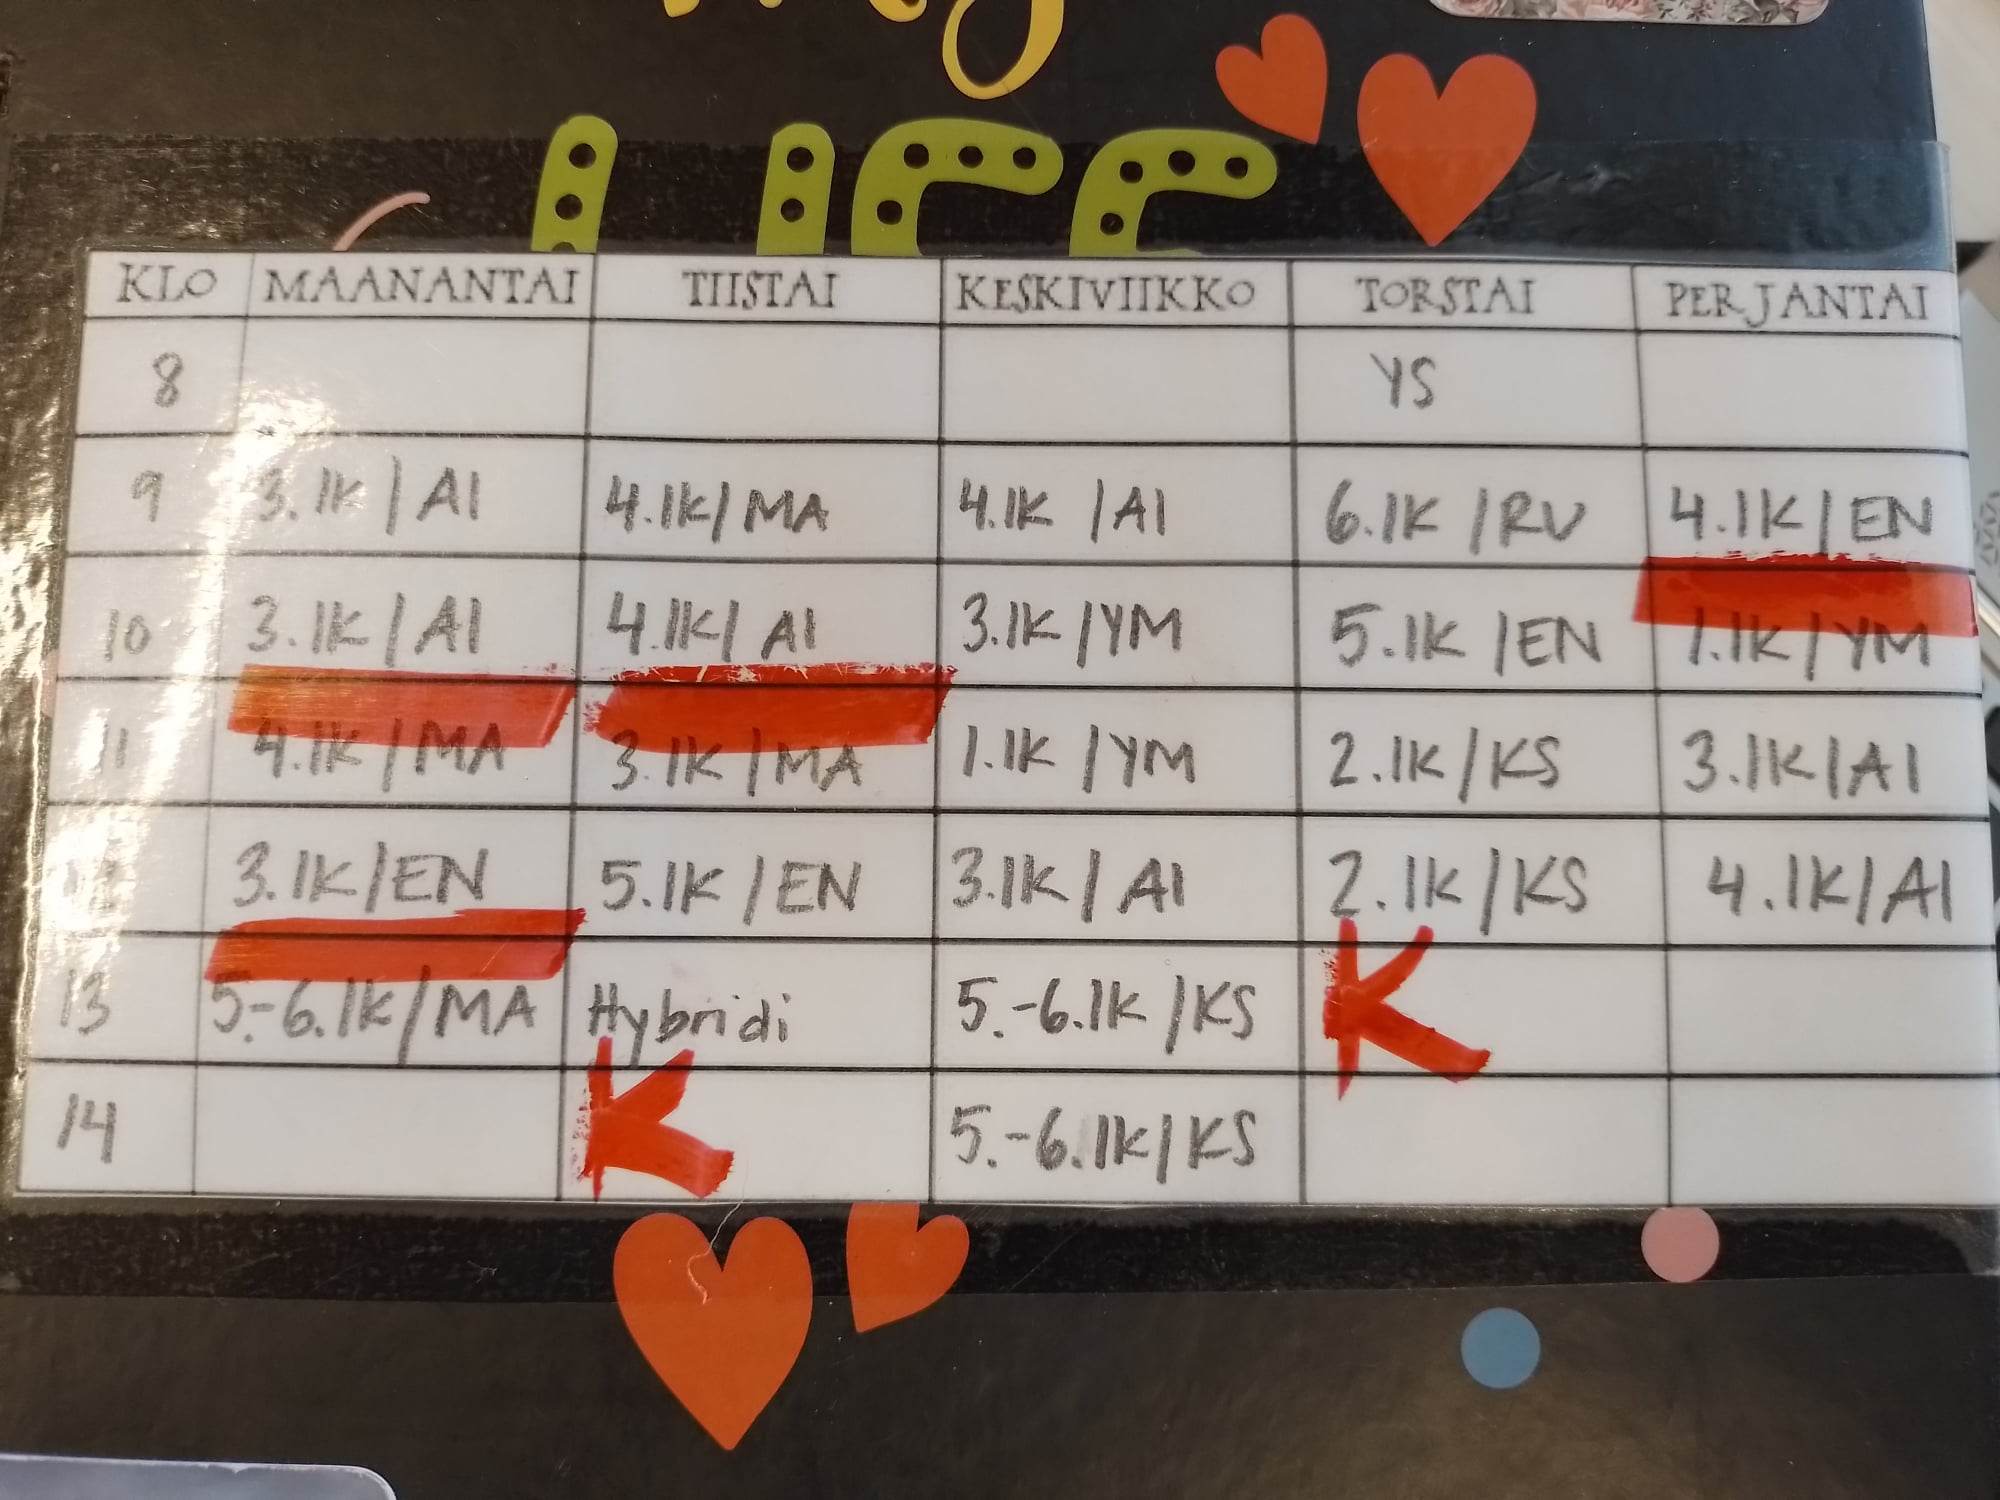 KLO MAANANTAI TIISTAI KESKIVIIKKO TORSTAI PERJANTAI
8 YS
9 3.lK/AI 4.lK/MA 4.lK/AI 6.lK/RU 4.lK/EN
10 3.lK/AI 4.lK/AI 3.lK/YM 5.lK/EN 1.lK/YM
11 4.lK/MA 3.lK/MA 1.lK/YM 2.lK/KS 3.lK/AI
12 3.lK/EN 5.lK/EN 3.lK/AI 2.lK/KS 4.lK/AI
13 5.-6.lK/MA Hybridi 5.-6.lK/KS K
14 K 5.-6.lK/KS